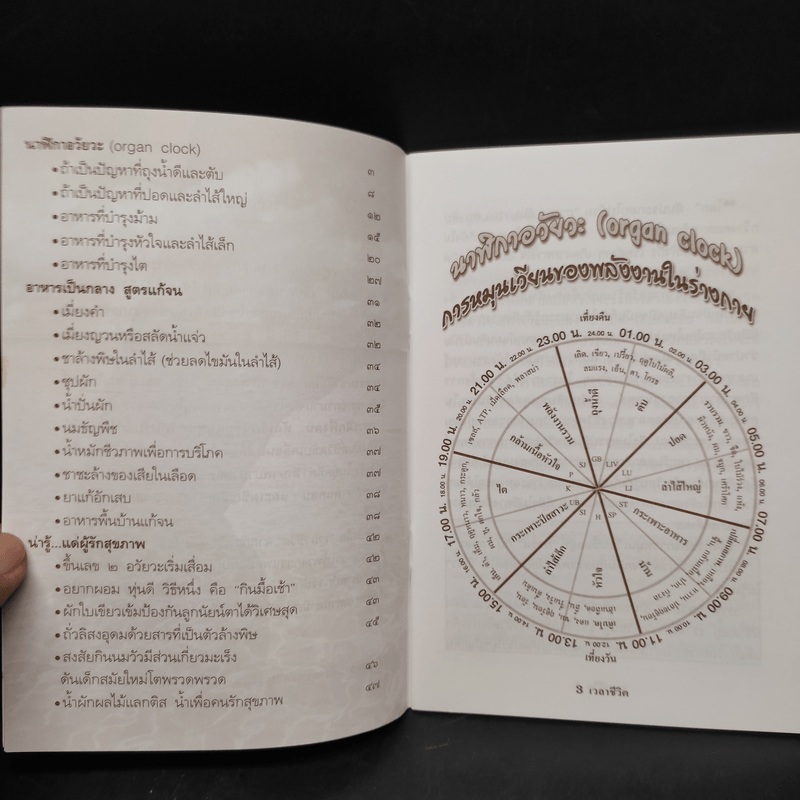 นาฬิกาอวัยวะ (organ clock)
• ถ้าเป็นปัญหาที่ถุงน้ำดีและตับ ๓
• ถ้าเป็นปัญหาที่ปอดและลำไส้ใหญ่ ๘
• อาหารที่บำรุงม้าม ๑๒
• อาหารที่บำรุงหัวใจและลำไส้เล็ก ๑๕
• อาหารที่บำรุงไต ๒๐
อาหารเป็นกลาง สูตรแก้จน ๒๗
• เมี่ยงคำ ๓๑
• เมี่ยงญวนหรือสลัดน้ำแจ่ว ๓๒
• ชาล้างพิษในลำไส้ (ช่วยลดไขมันในลำไส้) ๓๒
• ซุปผัก ๓๔
• น้ำปั่นผัก ๓๔
• นมธัญพืช ๓๕
• น้ำหมักชีวภาพเพื่อการบริโภค ๓๖
• ชาชะล้างของเสียในเลือด ๓๗
• ยาแก้อักเสบ ๓๗
• อาหารพื้นบ้านแก้จน ๓๘
น่ารู้...แด่ผู้รักสุขภาพ ๓๘
• ขึ้นเลข ๒ อวัยวะเริ่มเสื่อม ๔๒
• อยากผอม หุ่นดี วิธีหนึ่ง คือ "กินมื้อเช้า" ๔๓
• ผักใบเขียวเข้มป้องกันลูกนัยน์ตาได้วิเศษสุด ๔๓
• ถั่วลิสงอุดมด้วยสารที่เป็นตัวล้างพิษ ๔๕
• สงสัยกินนมวัวมีส่วนเกี่ยวมะเร็ง
ดันเด็กสมัยใหม่โตพรวดพรวด ๔๖
• น้ำผักผลไม้แลกติส น้ำเพื่อคนรักสุขภาพ ๔๗
นาฬิกาอวัยวะ (organ clock)
การหมุนเวียนของพลังงานในร่างกาย
เที่ยงคืน
23.00 น.
24.00 น.
01.00 น.
02.00 น.
03.00 น.
04.00 น.
05.00 น.
06.00 น.
07.00 น.
08.00 น.
09.00 น.
10.00 น.
11.00 น.
12.00 น.
13.00 น.
14.00 น.
15.00 น.
16.00 น.
17.00 น.
18.00 น.
19.00 น.
20.00 น.
21.00 น.
22.00 น.
ถุงน้ำดี
ตับ
ปอด
ลำไส้ใหญ่
กระเพาะอาหาร
ม้าม
หัวใจ
ลำไส้เล็ก
กระเพาะปัสสาวะ
ไต
กล้ามเนื้อหัวใจ
พลังงานรวม
GB
LIV
LU
LI
ST
SP
H
SI
UB
K
P
SJ
เที่ยงวัน
3 เวลาชีวิต